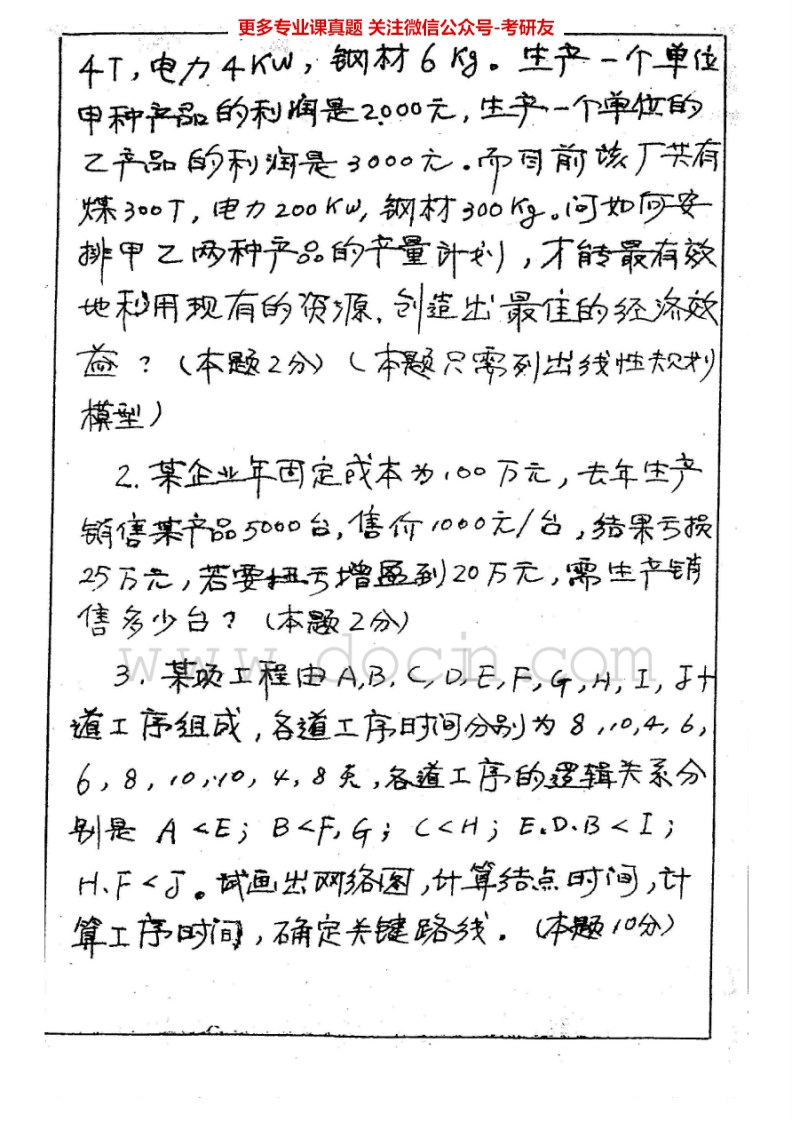 更多专业课真题 关注微信公众号-考研友
4T,电力4KW,钢材6Kg。生产一个单位
甲种产品的利润是2000元,生产一个单位的
乙产品的利润是3000元。而目前该厂共有
煤300T,电力200KW,钢材300Kg。问如何安
排甲乙两种产品的产量计划,才能最有效
地利用现有的资源,创造出最佳的经济效
益?(本题2分)(本题只需列出线性规划
模型)
2.某企业年固定成本为100万元,去年生产
销售某产品5000台,售价1000元/台,结果亏损
25万元,若要扭亏增盈到20万元,需生产销
售多少台?(本题2分)
www.docin.com
3.某项工程由A,B,C,D,E,F,G,H,I,J十
道工序组成,各道工序时间分别为8,10,4,6,
6,8,10,10,4,8天,各道工序的逻辑关系分
别是 A<E; B<F,G; C<H; E.D.B<I;
H.F<J。试画出网络图,计算结点时间,计
算工序时间,确定关键路线。(本题10分)